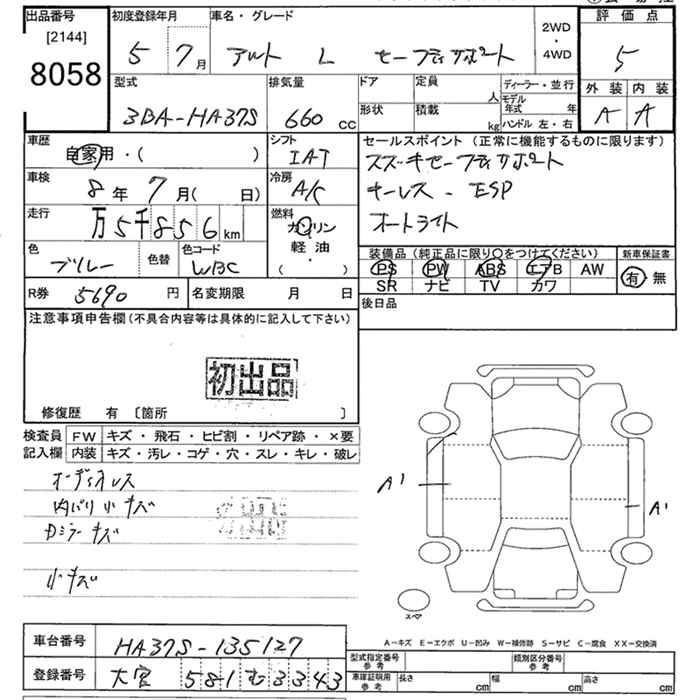 出品番号
[2144]
8058
初度登録年月
5 7月
車名・グレード
アルト L セーフティサポート
2WD
・
4WD
評価点
5
外装 内装
A A
型式
3BA-HA37S
排気量
660 cc
ドア
定員
人
形状
積載
kg
ディーラー・並行
モデル年式 年
ハンドル 左・右
車歴
自家用・( )
シフト
IAT
車検
8年 7月( 日)
冷房
A/C
走行
万5千856km
燃料
ガソリン
軽油
( )
色
ブルー
色替
色コード
WBC
セールスポイント (正常に機能するものに限ります)
スズキセーフティサポート
キーレス - ESP
オートライト
装備品 (純正品に限り○をつけてください)
PS PW ABS エアB AW
SR ナビ TV カワ
新車保証書
有 無
R券 5690 円
名変期限 月 日
後日品
注意事項申告欄(不具合内容等は具体的に記入して下さい)
初出品
修復歴 有 〔箇所 〕
検査員
記入欄
FW キズ・飛石・ヒビ割・リペア跡・×要
内装 キズ・汚レ・コゲ・穴・スレ・キレ・破レ
オーディオレス
内バリ小キズ
Dミラーキズ
小キズ
A1
A1
スペア
A-キズ E-エクボ U-凹み W-補修跡 S-サビ C-腐食 XX-交換済
車台番号
HA37S-135127
登録番号
大宮 581 む 3343
型式指定番号
参考
類別区分番号
参考
車庫証明用
参考
長さ cm
幅 cm
高さ cm